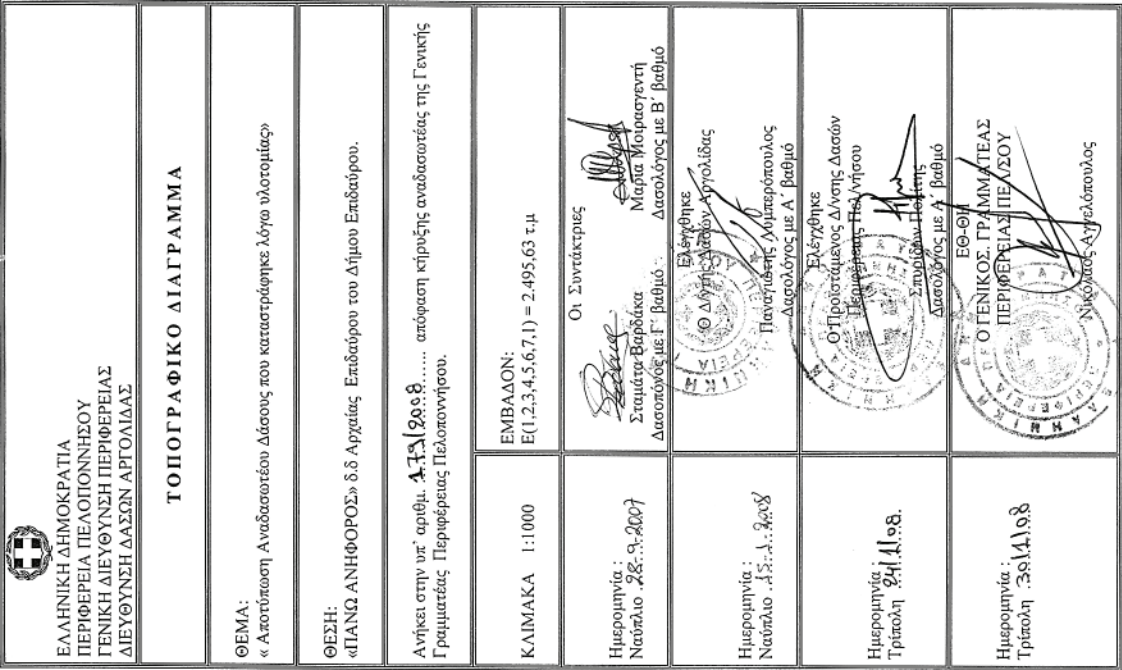 ΕΛΛΗΝΙΚΗ ΔΗΜΟΚΡΑΤΙΑ
ΠΕΡΙΦΕΡΕΙΑ ΠΕΛΟΠΟΝΝΗΣΟΥ
ΓΕΝΙΚΗ ΔΙΕΥΘΥΝΣΗ ΠΕΡΙΦΕΡΕΙΑΣ
ΔΙΕΥΘΥΝΣΗ ΔΑΣΩΝ ΑΡΓΟΛΙΔΑΣ
ΤΟΠΟΓΡΑΦΙΚΟ ΔΙΑΓΡΑΜΜΑ
ΘΕΜΑ:
« Αποτύπωση Αναδασωτέου Δάσους που καταστράφηκε λόγω υλοτομίας»
ΘΕΣΗ:
«ΠΑΝΩ ΑΝΗΦΟΡΟΣ» δ.δ Αρχαίας Επιδαύρου του Δήμου Επιδαύρου.
Ανήκει στην υπ' αριθμ. 179/2008 ...... απόφαση κήρυξης αναδασωτέας της Γενικής
Γραμματέας Περιφέρειας Πελοποννήσου.
ΚΛΙΜΑΚΑ 1:1000
ΕΜΒΑΔΟΝ:
Ε(1,2,3,4,5,6,7,1) = 2.495,63 τ,μ
Ημερομηνία :
Ναύπλιο 28-9-2007
Οι Συντάκτριες
Σταμάτα Βαρδάκα
Δασοπόνος με Γ΄ βαθμό
Μαρία Μοιρασγεντή
Δασολόγος με Β΄ βαθμό
Ημερομηνία :
Ναύπλιο 15-1-2008
Ελέγχθηκε
Ο Δ/ντής Δασών Αργολίδας
Παναγιώτης Λυμπερόπουλος
Δασολόγος με Α΄ βαθμό
Ημερομηνία :
Τρίπολη 24/1/08.
Ελέγχθηκε
Ο Προϊστάμενος Δ/νσης Δασών
Περιφέρειας Πελ/νήσου
Σπυρίδων Πολίτης
Δασολόγος με Α΄ βαθμό
Ημερομηνία :
Τρίπολη 30/1/08
ΕΘ-ΘΗ
Ο ΓΕΝΙΚΟΣ. ΓΡΑΜΜΑΤΕΑΣ
ΠΕΡΙΦΕΡΕΙΑΣ ΠΕΛ/ΣΟΥ
Νικόλαος Αγγελόπουλος